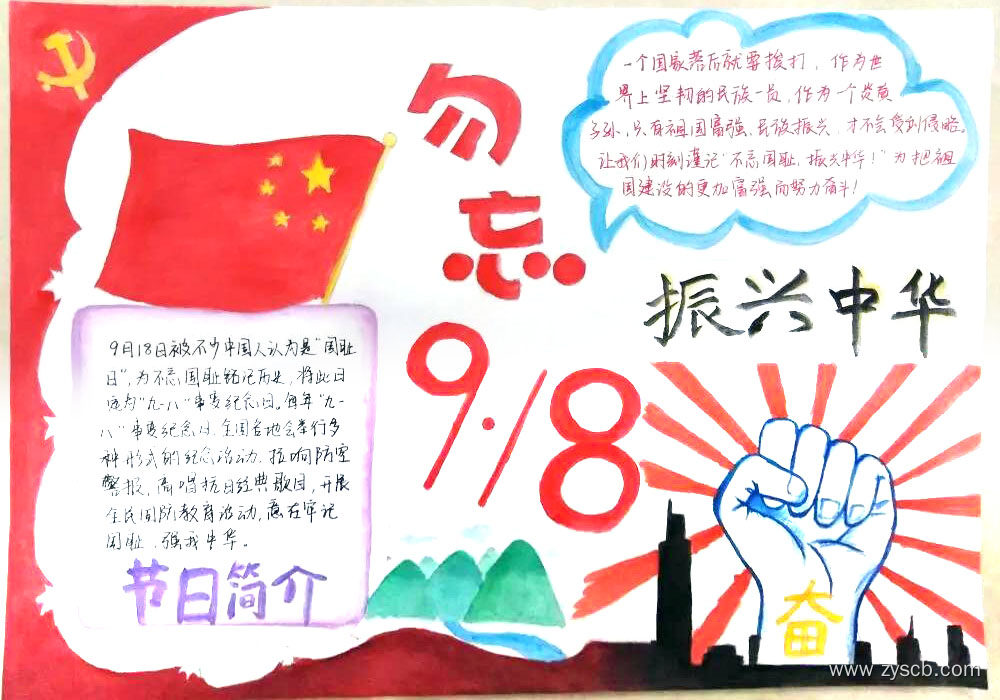 勿忘
9·18
一个国家落后就要挨打，作为世
界上坚韧的民族一员，作为一个炎黄
子孙，只有祖国富强、民族振兴，才不会受到侵略。
让我们时刻谨记"不忘国耻，振兴中华！"为把祖
国建设的更加富强而努力奋斗！
振兴中华
9月18日被不少中国人认为是"国耻
日"，为不忘国耻铭记历史，将此日
定为"九一八"事变纪念日。每年"九一
八"事变纪念日，全国各地会举行多
种形式的纪念活动，拉响防空
警报，高唱抗日经典歌曲，开展
全民国防教育活动，意在牢记
国耻、强我中华。
节日简介
奋
www.zyscb.com